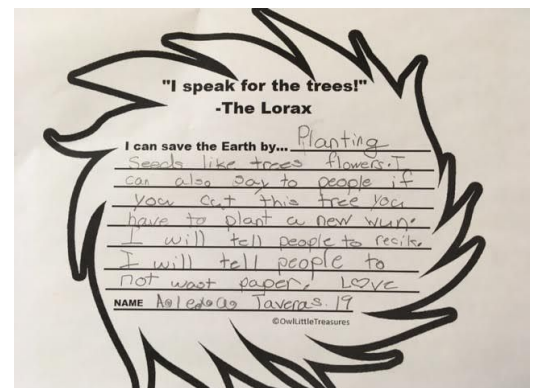 "I speak for the trees!"
-The Lorax
I can save the Earth by... Planting
Seeds like trees flowers. I
can also say to people if
you cut this tree you
have to plant a new wun.
I will tell people to recile.
I will tell people to
not wast paper. Love
NAME Taveras. 19
©OwlLittleTreasures